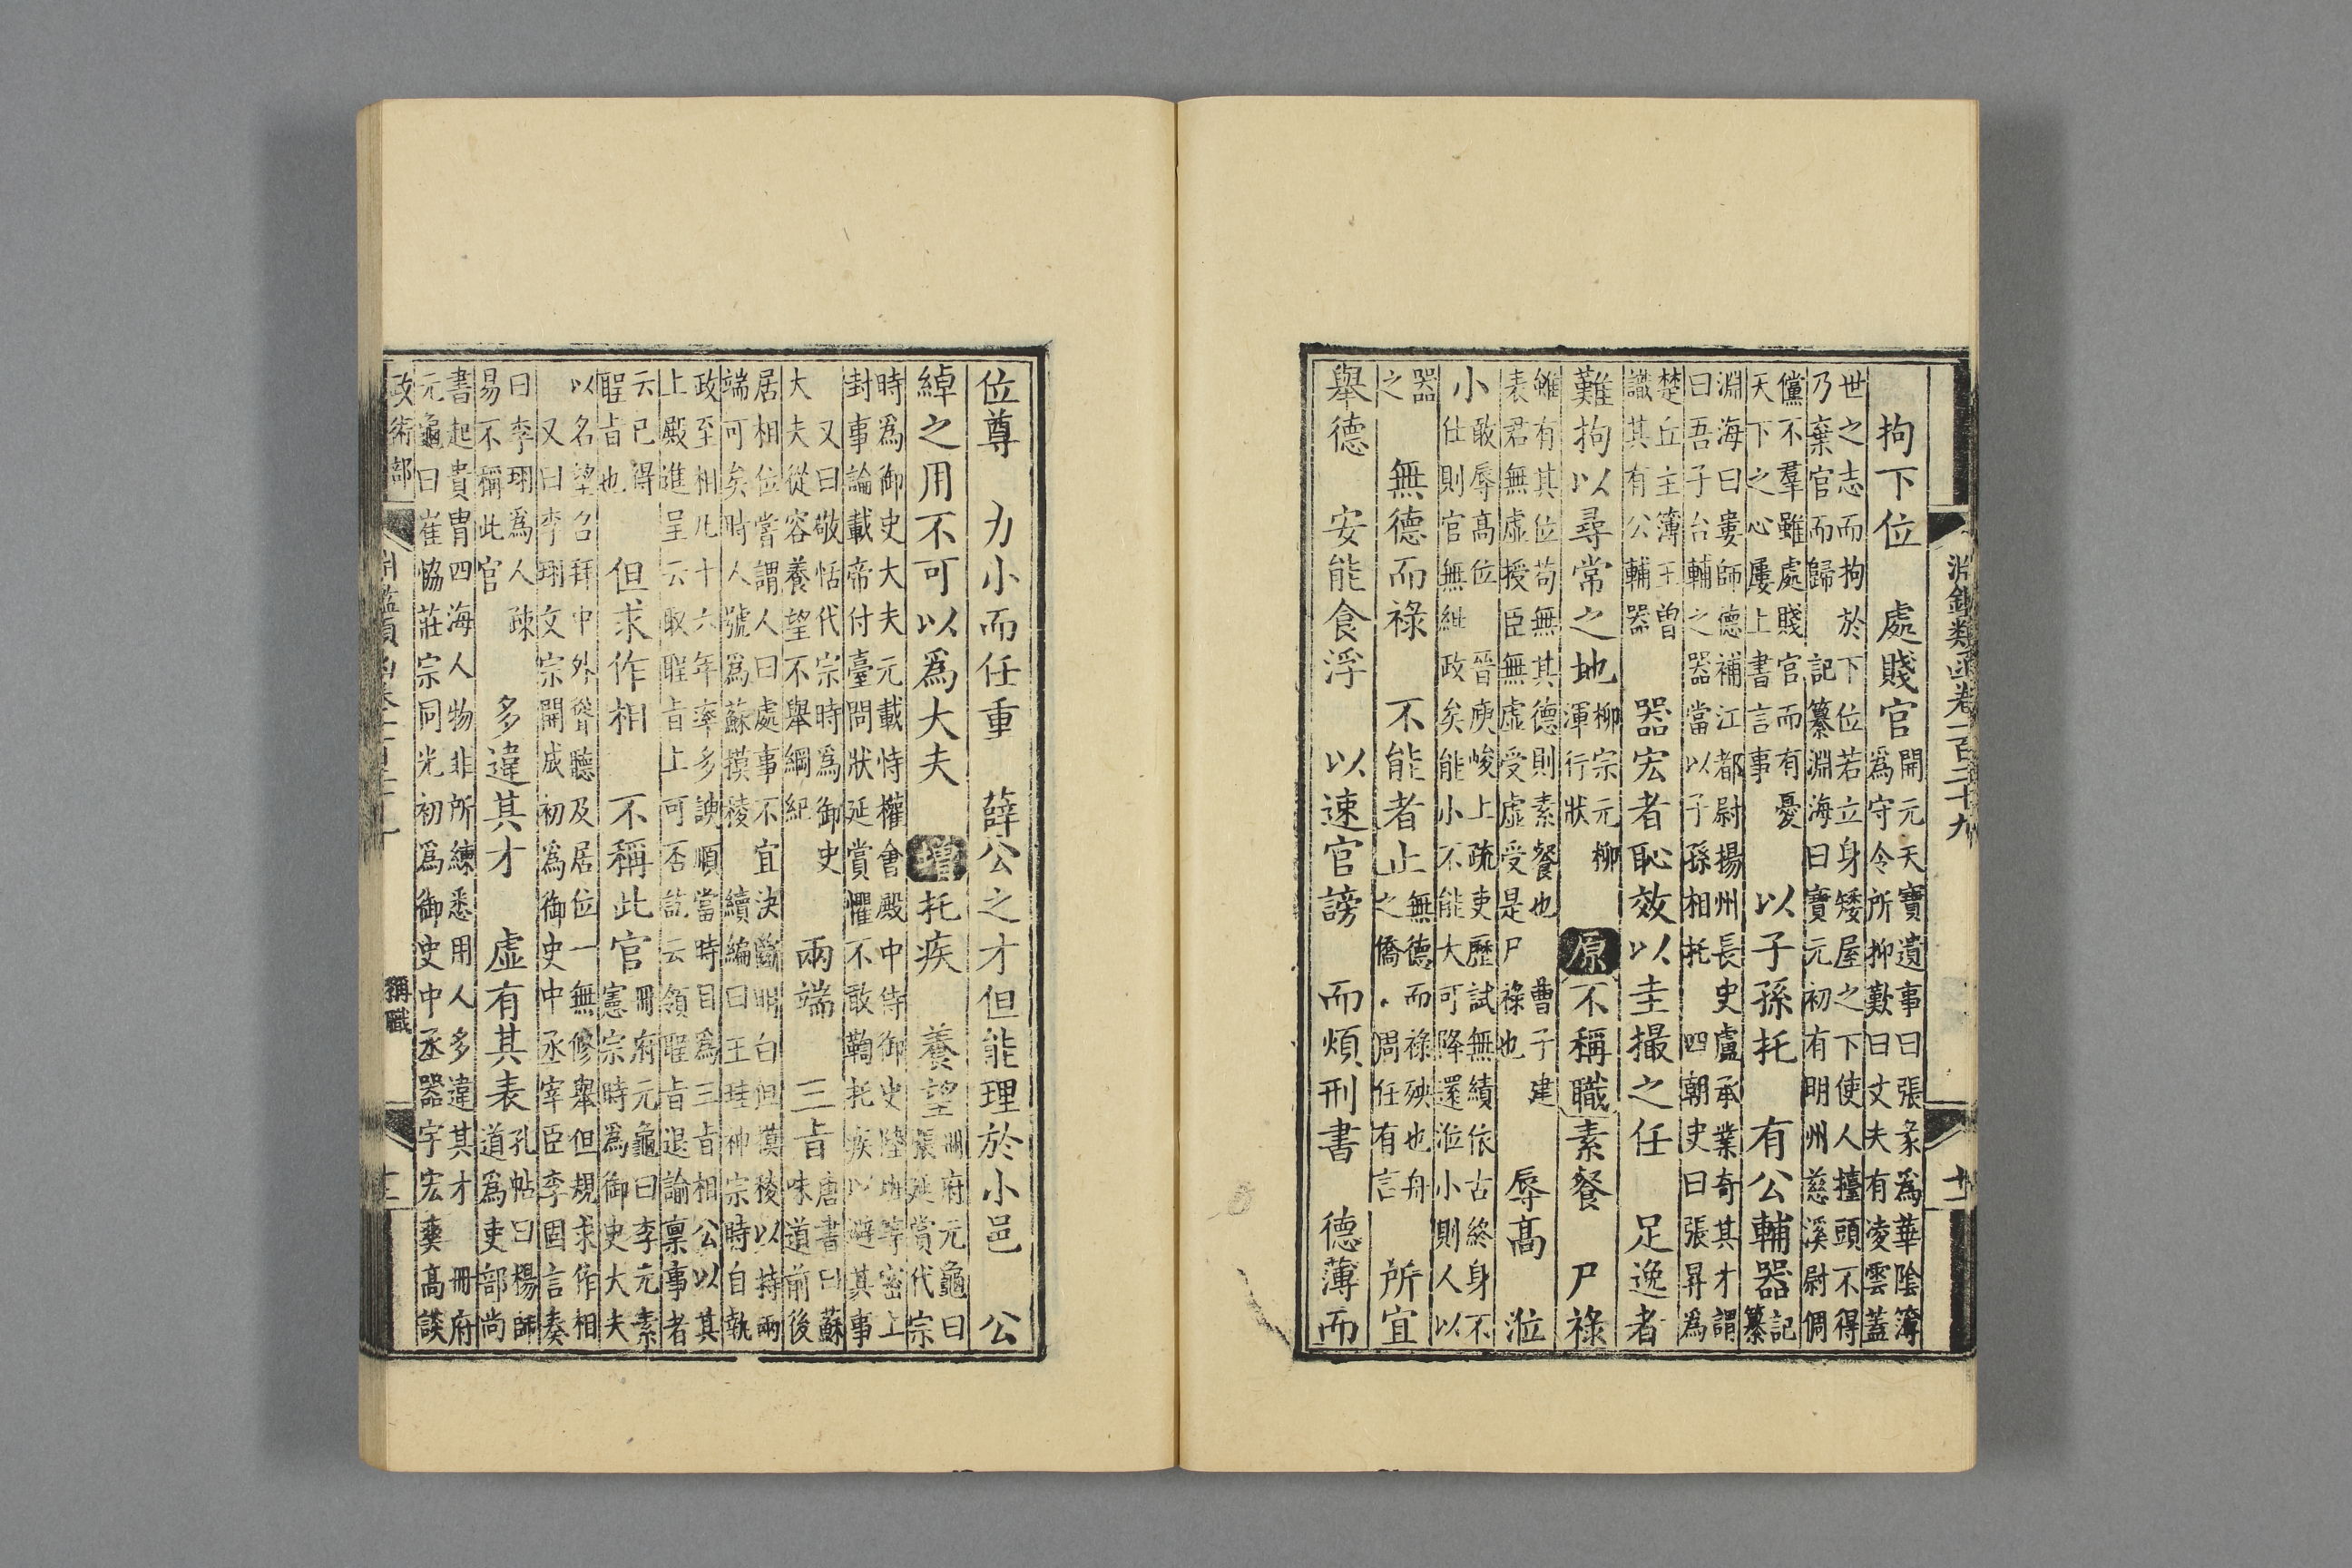 淵鑑類函卷一百二十九
十一
拘下位 處賤官 開元天寶遺事曰張彖為華陰簿
為守令所抑歎曰丈夫有凌雲蓋
世之志而拘於下位若立身矮屋之下使人擡頭不得
乃棄官而歸 記纂淵海曰寶元初有明州慈溪尉倜
儻不羣雖處賤官而有憂
天下之心屢上書言事 以子孫托 有公輔器 記
纂
淵海曰婁師德補江都尉揚州長史盧承業奇其才謂
曰吾子台輔之器當以子孫相托 四朝史曰張昇爲
楚丘主簿王曾
識其有公輔器 器宏者恥效以圭撮之任 足逸者
難拘以尋常之地 柳宗元柳
渾行狀 原 不稱職 素餐 尸祿
雖有其位苟無其德則素餐也 曹子建
表君無虛授臣無虛受虛受是尸祿也 辱高 涖
小 敢辱高位 晉庾峻上疏吏歷試無績依古終身不
仕則官無紕政矣能小不能大可降還涖小則人以
器
之 無德而祿 不能者止 無德而祿殃也舟
之僑 周任有言 所宜
舉德 安能食浮 以速官謗 而煩刑書 德薄而
位尊 力小而任重 薛公之才但能理於小邑 公
綽之用不可以爲大夫 增 托疾 養望 冊府元龜曰
張延賞代宗
時爲御史大夫元載恃權會殿中侍御史陸等密上
封事論載帝付臺問狀延賞懼不敢鞫托疾以避其事
又曰敬恬代宗時爲御史
大夫從容養望不舉綱紀 兩端 三旨 唐書曰蘇
味道前後
居相位嘗謂人曰處事不宜決斷明白但摸稜以持兩
端可矣時人號爲蘇摸稜 續編曰王珪神宗時自執
政至相凡十六年率多諛順當時目爲三旨相公以其
上殿進呈云取聖旨上可否訖云領聖旨退諭禀事者
云已得
聖旨也 但求作相 不稱此官 冊府元龜曰李元素
憲宗時爲御史大夫
以名望召拜中外聳聽及居位一無修舉但規求作相
又曰李珝文宗開成初爲御史中丞宰臣李固言奏
曰李珝爲人疎
易不稱此官 多違其才 虛有其表 孔帖曰楊師
道爲吏部尚
書起貴胄四海人物非所練悉用人多違其才 冊府
元龜曰崔協莊宗同光初爲御史中丞器宇宏爽高談
政術部
稱職